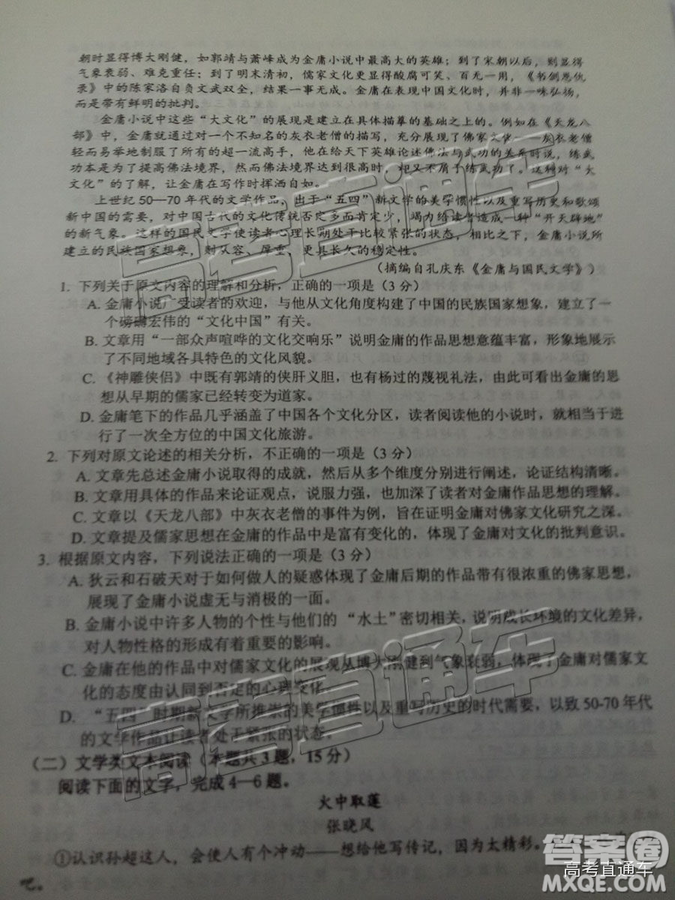 朝时显得博大刚健，如郭靖与萧峰成为金庸小说中最高大的英雄；到了宋朝以后，则显得
气象衰弱、难克重任；到了明末清初，儒家文化更显得酸腐可笑、百无一用，《书剑恩仇
录》中的陈家洛自负文武双全，结果一事无成。金庸在表现中国文化时，并非一味弘扬，
而是带有鲜明的批判。
金庸小说中这些“大文化”的展现是建立在具体描摹的基础之上的。例如在《天龙八
部》中，金庸就通过对一个不知名的灰衣老僧的描写，充分展现了佛家文化。灰衣老僧
轻而易举地制服了所有的超一流高手，他在给天下英雄论述佛法与武功的关系时说，练武
功本是为了提高佛法境界，然而佛法境界达到很高时，却又不屑于练武功了。这种对“大
文化”的了解，让金庸在写作时挥洒自如。
上世纪50—70年代的文学作品，出于“五四”新文学的美学惯性以及重写历史和歌颂
新中国的需要，对中国古代的文化传统否定多而肯定少，竭力给读者造成一种“开天辟地”
的新气象。这样的国民文学使读者心理长期处于比较紧张的状态，相比之下，金庸小说所
建立的民族国家想象，则从容、厚重，更具长久的稳定性。
（摘编自孔庆东《金庸与国民文学》）
1. 下列关于原文内容的理解和分析，正确的一项是（3 分）
A. 金庸小说广受读者的欢迎，与他从文化角度构建了中国的民族国家想象，建立了一
个磅礴宏伟的“文化中国”有关。
B. 文章用“一部众声喧哗的文化交响乐”说明金庸的作品思想意蕴丰富，形象地展示
了不同地域各具特色的文化风貌。
C. 《神雕侠侣》中既有郭靖的侠肝义胆，也有杨过的蔑视礼法，由此可以看出金庸的思
想从早期的儒家已经转变为道家。
D. 金庸笔下的作品几乎涵盖了中国各个文化分区，读者阅读他的小说时，就等于进
行了一次全方位的中国文化旅游。
2. 下列对原文论述的相关分析，不正确的一项是（3 分）
A. 文章先总述金庸小说取得的成就，然后从多个维度分别进行阐述，论证结构清晰。
B. 文章用具体的作品来论证观点，说服力强，也加深了读者对金庸作品思想的理解。
C. 文章以《天龙八部》中灰衣老僧的事件为例，旨在证明金庸对佛家文化研究之深。
D. 文章提及儒家思想在金庸作品中是富有变化的，体现了金庸对文化的批判意识。
3. 根据原文内容，下列说法正确的一项是（3 分）
A. 狄云和石破天对于如何做人的疑惑体现了金庸后期的作品带有很浓重的佛家思想，
展现了金庸小说虚无与消极的一面。
B. 金庸小说中许多人物的个性与他们的“水土”密切相关，说明成长环境的文化差异，
对人物性格的形成有着重要的影响。
C. 金庸在他的作品中对儒家文化的展现从博大刚健到气象衰弱，体现了金庸对儒家文
化的态度由认同到否定的心理变化。
D. “五四”时期新文学所推崇的美学惯性以及重写历史的时代需要，以致 50-70 年代
的文学作品让读者处于紧张的状态。
（二）文学类文本阅读（本题共 3 题，15 分）
阅读下面的文字，完成 4—6 题。
火中取莲
张晓风
①认识孙超这人，会使人有个冲动——想给他写传记，因为太精彩。
高考直通车
答案圈
高考直通车
MXQE.COM